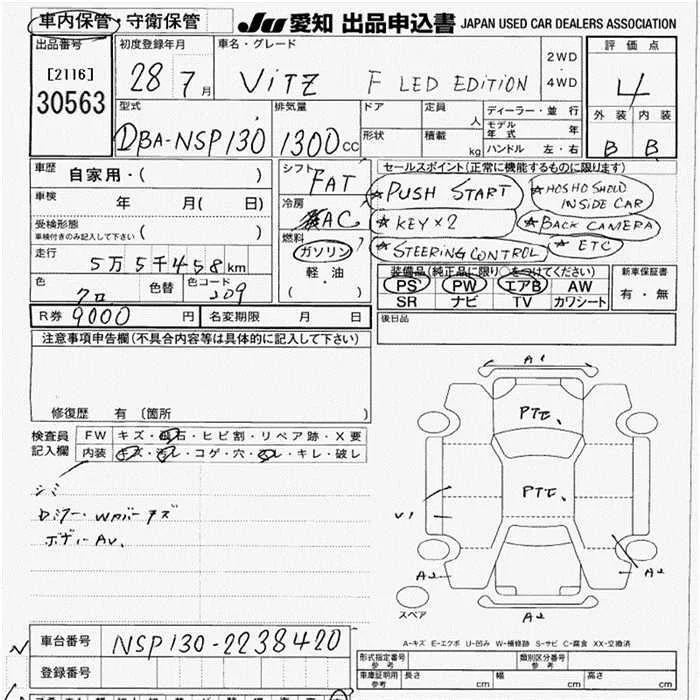 車内保管・守衛保管
JU 愛知 出品申込書 JAPAN USED CAR DEALERS ASSOCIATION
出品番号
[2116]
30563
初度登録年月
28 7月
車名・グレード
ViTZ F LED EDITION
2WD
・
4WD
評価点
4
外装 内装
B B
型式
DBA-NSP130
排気量
1300cc
ドア
形状
定員
人
積載
kg
ディーラー・並行
モデル年式 年
ハンドル 左・右
車歴
自家用・( )
車検
年 月( 日)
受検形態
車検付きのみ記入して下さい ( )
走行
5万5千458km
色
クロ
色替
色コード
209
シフト
FAT
冷房
AC
燃料
ガソリン
・
軽・油
・
( )
セールスポイント(正常に機能するものに限ります)
★PUSH START
★HOSHO SHOLO INSIDE CAR
★KEY×2
★BACK CAMERA
★STEERING CONTROL
★ETC
装備品(純正品に限り○をつけてください)
PS PW エアB AW
SR ナビ TV カワシート
新車保証書
有・無
R券 9000円
名変期限 月 日
後日品
注意事項申告欄(不具合内容等は具体的に記入して下さい)
修復歴 有〔箇所 〕
検査員記入欄
FW キズ・飛石・ヒビ割・リペア跡・X要
内装 キズ・汚レ・コゲ・穴・スレ・キレ・破レ
シミ
Dミラー・Wカバーキズ
ボディーAU、
A1
PTE、
PTE、
V1
A2
A2
A2
スペア
A-キズ E-エクボ U-凹み W-補修跡 S-サビ C-腐食 XX-交換済
車台番号
NSP130-2238420
登録番号
形式指定番号
参考
類別区分番号
参考
車庫証明用
参考
長さ cm
幅 cm
高さ cm